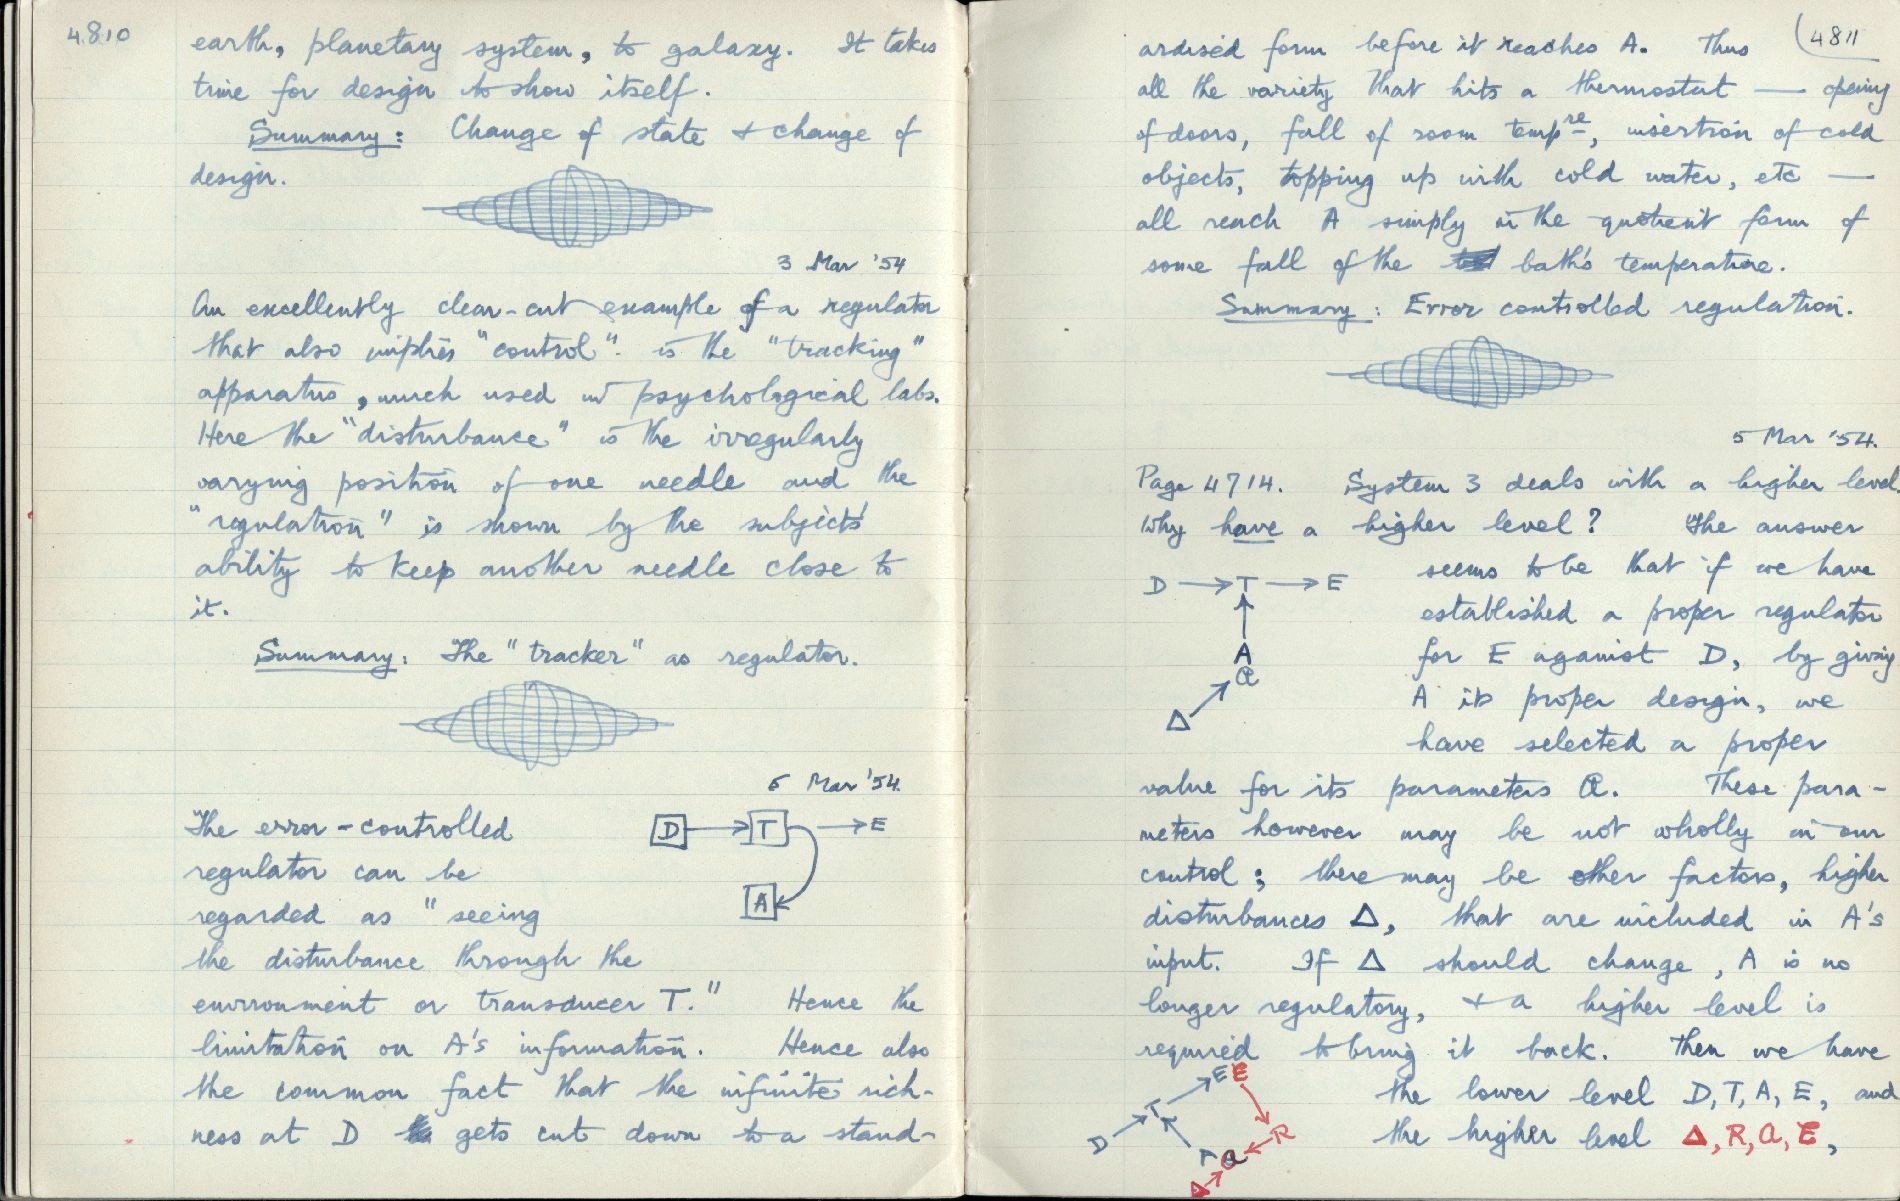 4810
earth, planetary system, to galaxy. It takes
time for design to show itself.
Summary: Change of state & change of
design.
3 Mar '54
An excellently clear-cut example of a regulator
that also implies "control" is the "tracking"
apparatus, much used in psychological labs.
Here the "disturbance" is the irregularly
varying position of one needle and the
"regulation" is shown by the subject's
ability to keep another needle close to
it.
Summary: The "tracker" as regulator.
5 Mar '54.
The error-controlled
regulator can be
regarded as "seeing
the disturbance through the
environment or transducer T." Hence the
limitation on A's information. Hence also
the common fact that the infinite rich-
ness at D gets cut down to a stand-
D T E
A
4811
ardised form before it reaches A. Thus
all the variety that hits a thermostat — opening
of doors, fall of room tempre, insertion of cold
objects, topping up with cold water, etc —
all reach A simply in the quotient form of
some fall of the bath's temperature.
Summary: Error controlled regulation.
5 Mar '54.
Page 4714. System 3 deals with a higher level.
Why have a higher level? The answer
seems to be that if we have
established a proper regulator
for E against D, by giving
A its proper design, we
have selected a proper
D T E
A
a
Δ
value for its parameters a. These para-
meters however may be not wholly in our
control; there may be other factors, higher
disturbances Δ, that are included in A's
input. If Δ should change, A is no
longer regulatory, & a higher level is
required to bring it back. Then we have
the lower level D, T, A, E, and
the higher level Δ, R, a, E,
E E
T
D
R
a
Δ